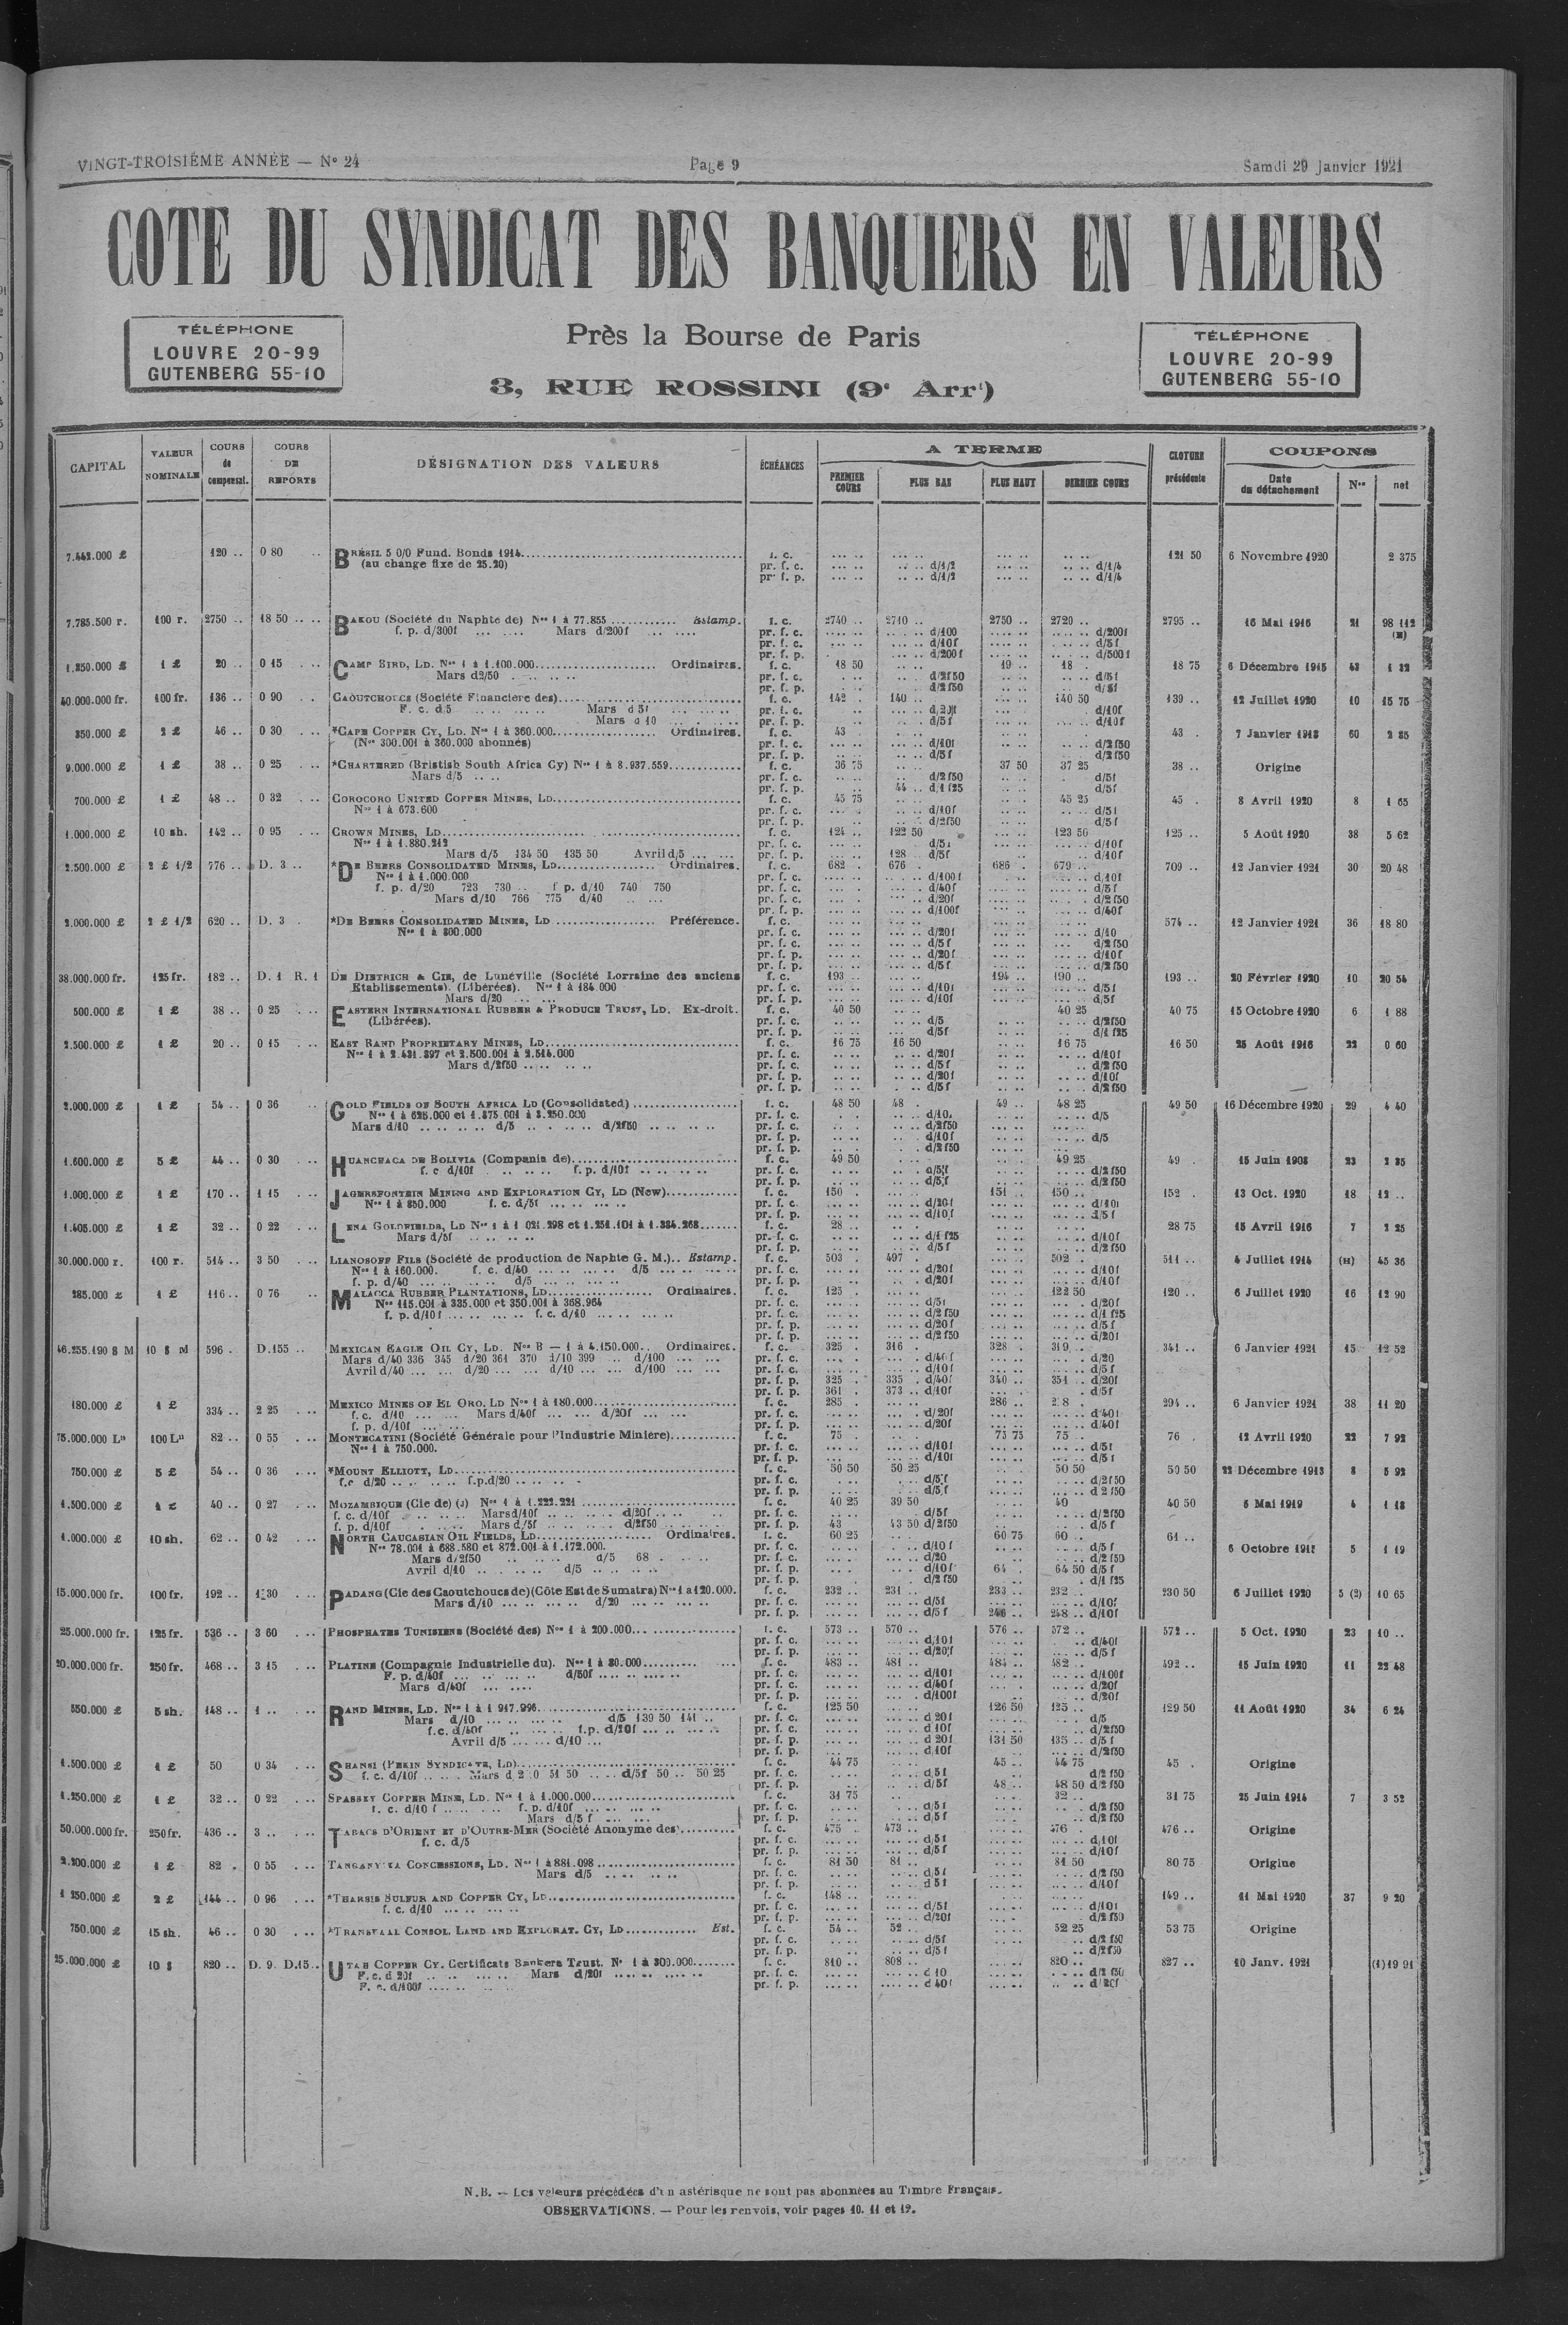 VINGT-TROISIÈME ANNÉE — N° 24 Page 9 Samdi 29 Janvier 1921
COTE DU SYNDICAT DES BANQUIERS EN VALEURS
TÉLÉPHONE
LOUVRE 20-99
GUTENBERG 55-10
Près la Bourse de Paris
3, RUE ROSSINI (9e Arrt)
TÉLÉPHONE
LOUVRE 20-99
GUTENBERG 55-10
CAPITAL VALEUR NOMINALE COURS de compensat. COURS DE REPORTS DÉSIGNATION DES VALEURS ÉCHÉANCES A TERME PREMIER COURS PLUS BAS PLUS HAUT DERNIER COURS CLOTURE précédente COUPONS Date du détachement Nos net
7.442.000 £ 120 .. 0 80 .. BRÉSIL 5 0/0 Fund. Bonds 1914 f. c. 121 50 6 Novembre 1920 2 375
(au change fixe de 25.20) pr. f. c. d/1/2 d/1/4
pr. f. p. d/1/2 d/1/4
7.785.500 r. 100 r. 2750 .. 18 50 .. BAKOU (Société du Naphte de) Nos 1 à 77.855 Estamp. f. c. 2740 .. 2710 .. 2750 .. 2720 .. 2795 .. 16 Mai 1916 21 98 112
f. p. d/300f Mars d/200f pr. f. c. d/100 d/200f (H)
pr. f. c. d/10f d/5f
pr. f. p. d/200f d/500f
1.250.000 £ 1 £ 20 .. 0 15 CAMP BIRD, LD. Nos 1 à 1.100.000 Ordinaires. f. c. 18 50 19 .. 18 . 18 75 6 Décembre 1915 43 1 32
Mars d2/50 pr. f. c. d/2f50 d/5f
pr. f. p. d/2f50 d/5f
40.000.000 fr. 100 fr. 136 .. 0 90 CAOUTCHOUCS (Société Financière des) f. c. 142 . 140 .. 140 50 139 .. 12 Juillet 1920 10 15 75
F. c. d 5 Mars d 5f pr. f. c. d/20f d/10f
Mars d 10 pr. f. p. d/5f d/10f
350.000 £ 2 £ 46 .. 0 30 *CAPE COPPER CY, LD. Nos 1 à 360.000 Ordinaires. f. c. 43 . 43 . 7 Janvier 1913 60 2 85
(Nos 300.001 à 360.000 abonnés) pr. f. c. d/10f d/2f50
pr. f. p. d/5f d/2f50
9.000.000 £ 1 £ 38 .. 0 25 *CHARTERED (Bristish South Africa Cy) Nos 1 à 8.937.559 f. c. 36 75 37 50 37 25 38 .. Origine
Mars d/5 pr. f. c. d/2f50 d/5f
pr. f. p. 44 .. d/1f25 d/5f
700.000 £ 1 £ 48 .. 0 32 COROCORO UNITED COPPER MINES, LD f. c. 45 75 45 25 45 . 8 Avril 1920 8 1 65
Nos 1 à 673.600 pr. f. c. d/10f d/5f
pr. f. p. d/2f50 d/5f
1.000.000 £ 10 sh. 142 .. 0 95 CROWN MINES, LD f. c. 124 .. 122 50 123 50 125 .. 5 Août 1920 38 5 62
Nos 1 à 1.880.212 pr. f. c. d/5f d/10f
Mars d/5 134 50 135 50 Avril d/5 pr. f. p. 128 .. d/5f d/10f
2.500.000 £ 2 £ 1/2 776 .. D. 3 .. *DE BEERS CONSOLIDATED MINES, LD Ordinaires. f. c. 682 . 676 . 686 . 679 .. 709 .. 12 Janvier 1921 30 20 48
Nos 1 à 1.000.000 pr. f. c. d/100f d/10f
f. p. d/20 723 730 .. f. p. d/10 740 750 pr. f. c. d/40f d/5f
Mars d/10 766 775 d/40 pr. f. p. d/20f d/2f50
pr. f. p. d/100f d/40f
2.000.000 £ 2 £ 1/2 620 .. D. 3 *DE BEERS CONSOLIDATED MINES, LD Préférence. f. c. 574 .. 12 Janvier 1921 36 18 80
Nos 1 à 800.000 pr. f. c. d/20f d/10
pr. f. c. d/5f d/2f50
pr. f. p. d/20f d/10f
pr. f. p. d/5f d/2f50
38.000.000 fr. 125 fr. 182 .. D. 1 R. 1 DE DIETRICH & CIE, de Lunéville (Société Lorraine des anciens f. c. 193 .. 194 .. 190 .. 193 .. 20 Février 1920 10 20 54
Etablissements). (Libérées). Nos 1 à 184.000 pr. f. c. d/10f d/5f
Mars d/20 pr. f. p. d/10f d/5f
500.000 £ 1 £ 38 .. 0 25 EASTERN INTERNATIONAL RUBBER & PRODUCE TRUST, LD. Ex-droit. f. c. 40 50 40 25 40 75 15 Octobre 1920 6 1 88
(Libérées). pr. f. c. d/5 d/2f50
pr. f. p. d/5f d/1f25
2.500.000 £ 1 £ 20 .. 0 15 EAST RAND PROPRIETARY MINES, LD f. c. 16 75 16 50 16 75 16 50 25 Août 1916 22 0 60
Nos 1 à 2.431.397 et 2.500.001 à 2.514.000 pr. f. c. d/20f d/10f
Mars d/2f50 pr. f. c. d/5f d/2f50
pr. f. p. d/20f d/10f
pr. f. p. d/5f d/2f50
2.000.000 £ 1 £ 54 .. 0 36 GOLD FIELDS OF SOUTH AFRICA LD (Consolidated) f. c. 48 50 48 . 49 .. 48 25 49 50 16 Décembre 1920 29 4 40
Nos 1 à 625.000 et 1.375.001 à 3.250.000 pr. f. c. d/10f d/5
Mars d/10 d/5 d/2f50 pr. f. c. d/2f50
pr. f. p. d/10f d/5
pr. f. p. d/2f50
1.600.000 £ 5 £ 44 .. 0 30 HUANCHACA DE BOLIVIA (Compania de) f. c. 49 50 49 25 49 . 15 Juin 1908 23 2 25
f. c d/10f f. p. d/10f pr. f. c. d/5f d/2f50
pr. f. p. d/5f d/2f50
1.000.000 £ 1 £ 170 .. 1 15 JAGERSFONTEIN MINING AND EXPLORATION CY, LD (New) f. c. 150 . 151 .. 150 .. 152 . 13 Oct. 1920 18 12 ..
Nos 1 à 850.000 f. c. d/5f pr. f. c. d/20f d/10f
pr. f. p. d/10f d/5f
1.405.000 £ 1 £ 32 .. 0 22 LENA GOLDFIELDS, LD Nos 1 à 1 021.298 et 1.251.101 à 1.384.268 f. c. 28 .. 28 75 15 Avril 1916 7 2 25
Mars d/5f pr. f. c. d/1f25 d/10f
pr. f. p. d/5f d/2f50
30.000.000 r. 100 r. 514 .. 3 50 LIANOSOFF FILS (Société de production de Naphte G. M.) Estamp. f. c. 503 . 497 . 502 . 511 .. 4 Juillet 1914 (H) 45 36
Nos 1 à 160.000. f. c. d/40 d/5 pr. f. c. d/20f d/10f
f. p. d/40 d/5 pr. f. p. d/20f d/10f
285.000 £ 1 £ 116 .. 0 76 MALACCA RUBBER PLANTATIONS, LD Ordinaires. f. c. 125 . 122 50 120 .. 6 Juillet 1920 16 12 90
Nos 115.001 à 335.000 et 350.001 à 368.964 pr. f. c. d/5f d/20f
f. p. d/10f f. c. d/10 pr. f. c. d/2f50 d/1f25
pr. f. p. d/20f d/5f
pr. f. p. d/2f50 d/20f
46.255.190 $ M 10 $ M 596 . D.155 .. MEXICAN EAGLE OIL CY, LD. Nos B — 1 à 4.150.000 Ordinaires f. c. 325 . 316 . 328 . 319 .. 341 .. 6 Janvier 1921 15 12 52
Mars d/40 336 345 d/20 361 370 d/10 399 .. d/100 pr. f. c. d/40f d/20
Avril d/40 d/20 d/10 d/100 pr. f. c. d/10f d/5f
pr. f. p. 325 . 335 . d/40f 340 .. 351 .. d/20f
pr. f. p. 361 . 373 .. d/10f d/5f
180.000 £ 1 £ 334 .. 2 25 MEXICO MINES OF EL ORO, LD Nos 1 à 180.000 f. c. 285 . 286 .. 294 .. 6 Janvier 1921 38 11 20
f. c. d/10 Mars d/40f d/20f pr. f. c. d/20f d/40f
f. p. d/10f pr. f. p. d/20f d/40f
75.000.000 Ls 100 Ls 82 .. 0 55 MONTECATINI (Société Générale pour l'Industrie Minière) f. c. 75 . 75 75 75 .. 76 . 12 Avril 1920 22 7 92
Nos 1 à 750.000. pr. f. c. d/10f d/5f
pr. f. p. d/10f d/5f
750.000 £ 5 £ 54 .. 0 36 *MOUNT ELLIOTT, LD f. c. 50 50 50 25 50 50 50 50 22 Décembre 1913 8 5 92
f.c d/20 f.p.d/20 pr. f. c. d/5f d/2f50
pr. f. p. d/5f d 2f50
1.500.000 £ 1 £ 40 .. 0 27 MOZAMBIQUE (Cie de) (J) Nos 1 à 1.222.221 f. c. 40 25 39 50 40 40 50 5 Mai 1919 4 1 18
f. c. d/10f Mars d/10f d/20f pr. f. c. d/5f d/2f50
f. p. d/10f Mars d/5f d/2f50 pr. f. p. 43 43 50 d/2f50 d/5f
1.000.000 £ 10 sh. 62 .. 0 42 NORTH CAUCASIAN OIL FIELDS, LD Ordinaires. f. c. 60 25 60 75 60 .. 61 .. 6 Octobre 5 1 19
Nos 78.001 à 688.580 et 872.001 à 1.172.000. pr. f. c. d/10f d/5f
Mars d/2f50 d/5 68 . pr. f. c. d/20 d/2f50
Avril d/10 d/5 pr. f. p. d/10f 64 . 64 50 d/5f
pr. f. p. d/2f50 d/1f25
15.000.000 fr. 100 fr. 192 .. 1 30 PADANG (Cie des Caoutchoucs de) (Côte Est de Sumatra) Nos 1 à 120.000. f. c. 232 .. 231 .. 233 .. 232 .. 230 50 6 Juillet 1920 5 (2) 10 65
Mars d/10 d/20 pr. f. c. d/5f d/10f
pr. f. p. d/5f 246 .. 248 .. d/10f
25.000.000 fr. 125 fr. 536 .. 3 60 PHOSPHATES TUNISIENS (Société des) Nos 1 à 200.000 f. c. 573 .. 570 .. 576 .. 572 .. 572 .. 5 Oct. 1920 23 10 ..
pr. f. c. d/10f d/40f
pr. f. p. d/20f d/5f
20.000.000 fr. 250 fr. 468 .. 3 15 PLATINE (Compagnie Industrielle du). Nos 1 à 80.000 f. c. 483 .. 481 .. 484 .. 482 .. 492 .. 15 Juin 1920 11 22 48
F. p. d/40f d/50f pr. f. c. d/10f d/100f
Mars d/40f pr. f. c. d/40f d/20f
pr. f. p. d/100f d/20f
550.000 £ 5 sh. 148 .. 1 .. RAND MINES, LD. Nos 1 à 1 917.996 f. c. 125 50 126 50 125 .. 129 50 11 Août 1920 34 6 24
Mars d/10 d/5 139 50 141 .. pr. f. c. d 20f d/5
f.c. d/40f f.p. d/20f pr. f. c. d 10f d/2f50
Avril d/5 d/10 pr. f. p. d 20f 131 50 135 .. d/5f
pr. f. p. d 10f d/2f50
1.500.000 £ 1 £ 50 0 34 SHANSI (PEKIN SYNDICATE, LD) f. c. 44 75 45 .. 44 75 45 . Origine
f. c. d/10f Mars 51 50 d/5f 50 .. 50 25 pr. f. c. d 5f d/2f50
pr. f. p. d/5f 48 .. 48 50 d/2f50
1.250.000 £ 1 £ 32 .. 0 22 SPASSKY COPPER MINE, LD. Nos 1 à 1.000.000 f. c. 31 75 32 .. 31 75 25 Juin 1914 7 3 52
f. c. d/10f f. p. d/10f pr. f. c. d/5f d/2f50
Mars d/5f pr. f. p. d/5f d/2f50
50.000.000 fr. 250 fr. 436 .. 3 .. TABACS D'ORIENT ET D'OUTRE-MER (Société Anonyme des) f. c. 475 . 473 .. 476 .. 476 .. Origine
f. c. d/5 pr. f. c. d/5f d/10f
pr. f. p. d/5f d/10f
2.200.000 £ 1 £ 82 . 0 55 TANGANYIKA CONCESSIONS, LD. Nos 1 à 881.098 f. c. 81 50 81 .. 81 50 80 75 Origine
Mars d/5 pr. f. c. d/5f d/2f50
pr. f. p. d 5f d/10f
1 250.000 £ 2 £ 144 .. 0 96 *THARSIS SULFUR AND COPPER CY, LD f. c. 148 .. 149 .. 11 Mai 1920 37 9 20
f. c. d/10 pr. f. c. d/5f d/10f
pr. f. p. d/20f d/2f50
750.000 £ 15 sh. 46 .. 0 30 *TRANSVAAL CONSOL. LAND AND EXPLORAT. CY, LD Est. f. c. 54 .. 52 .. 52 25 53 75 Origine
pr. f. c. d/5f d/2f50
pr. f. p. d/5f d/2f50
25.000.000 £ 10 $ 820 .. D. 9. D.15 .. UTAH COPPER CY. Certificats Bankers Trust. N° 1 à 300.000 f. c. 810 .. 808 .. 820 .. 827 .. 10 Janv. 1921 (1) 19 91
F. c. d 20f Mars d/20f pr. f. c. d 10 d/2f50
F. c. d/100f pr. f. p. d 40f d 20f
N.B. — Les valeurs précédées d'un astérisque ne sont pas abonnées au Timbre Français.
OBSERVATIONS. — Pour les renvois, voir pages 10. 11 et 12.